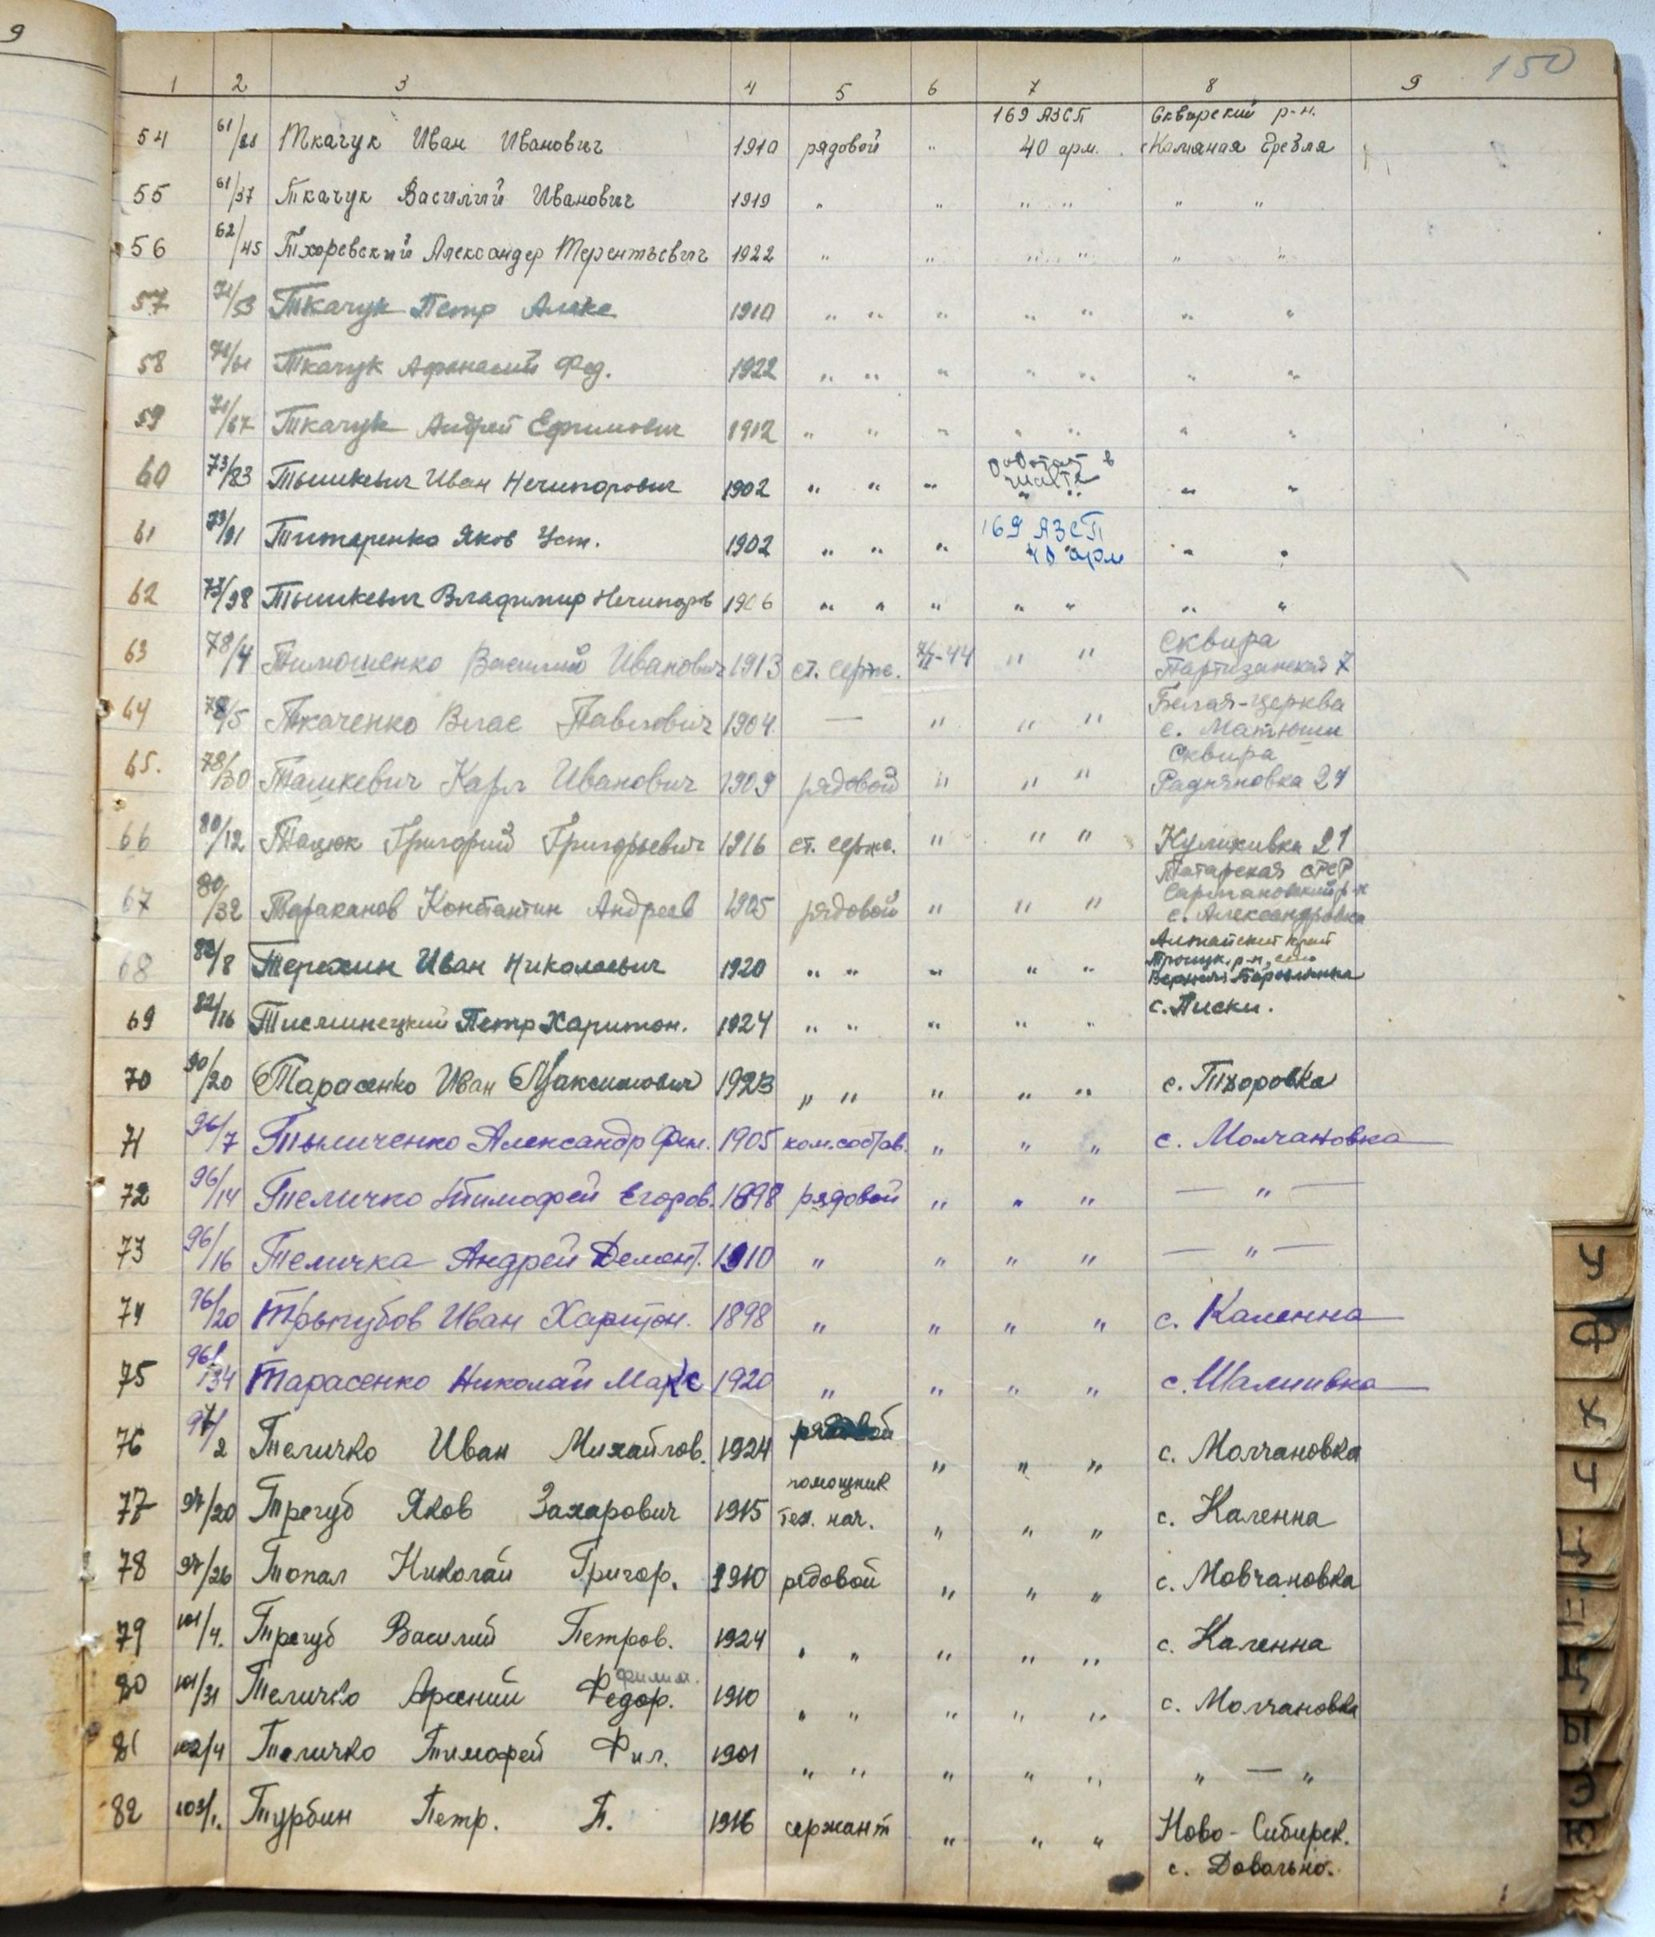 9
150
1 2 3 4 5 6 7 8 9
169 АЗСП Сквирский р-н.
54 61/28 Ткачук Иван Иванович 1910 рядовой " 40 арм. с. Каманая Гребля
55 61/37 Ткачук Василий Иванович 1919 " " " " " "
56 62/45 Тхоревский Александер Терентьевич 1922 " " " " " "
57 71/53 Ткачук Петр Алекс 1910 " " " " " " "
58 71/61 Ткачук Афанасий Фед. 1922 " " " " " " "
59 71/67 Ткачук Андрей Ефимович 1912 " " " " " " "
работает в
60 73/83 Тышкевич Иван Нечипорович 1902 " " " шахте " "
169 АЗСП
61 73/91 Титаренко Яков Уст. 1902 " " " 40 арм " "
62 73/98 Тышкевич Владимир Нечипоров 1906 " " " " " " "
Сквира
63 78/4 Тимошенко Василий Иванович 1913 ст. серж. -44 " " Партизанская 7
Белая-церква
64 78/5 Ткаченко Влас Павлович 1904 — " " " с. Матюши
Сквира
65. 78/30 Ташкевич Карл Иванович 1909 рядовой " " "
66 80/12 Тацюк Григорий Григорьевич 1916 ст. серж. " " " Куликивка 21
Татарская
67 80/32 Тараканов Константин Андреев 1905 рядовой " " " с. Александровка
Алтайский край
68 82/8 Терехин Иван Николаевич 1920 " " " " "
69 82/16 Тисминецкий Петр Харитон. 1924 " " " " " с. Писки.
70 90/20 Тарасенко Иван Максимович 1923 " " " " " с. Тхоровка
71 96/7 Тымиченко Александр Фил. 1905 ком. состав. " " " с. Молчановка
72 96/14 Теличко Тимофей Егоров. 1898 рядовой " " " — " —
73 96/16 Теличка Андрей Демент. 1910 " " " " — " —
74 96/20 Трыгубов Иван Харитон. 1898 " " " " с. Каленна
75 96/34 Тарасенко Николай Макс 1920 " " " " с. Шаливка
76 97/2 Теличко Иван Михайлов. 1924 рядовой " " " с. Молчановка
помощник
77 97/20 Трегуб Яков Захарович 1915 тех. нач. " " " с. Каленна
78 97/26 Топал Николай Григор. 1910 рядовой " " " с. Мовчановка
79 101/4. Трегуб Василий Петров. 1924 " " " " " с. Каленна
Филим.
80 101/31 Теличко Арсений Федор. 1910 " " " " " с. Молчановка
81 102/4 Теличко Тимофей Фил. 1901 " " " " " " — "
82 103/1. Турбин Петр. П. 1916 сержант " " " Ново-Сибирск.
с. Довольно.
У
Ф
Х
Ч
Ы
Э
Ю